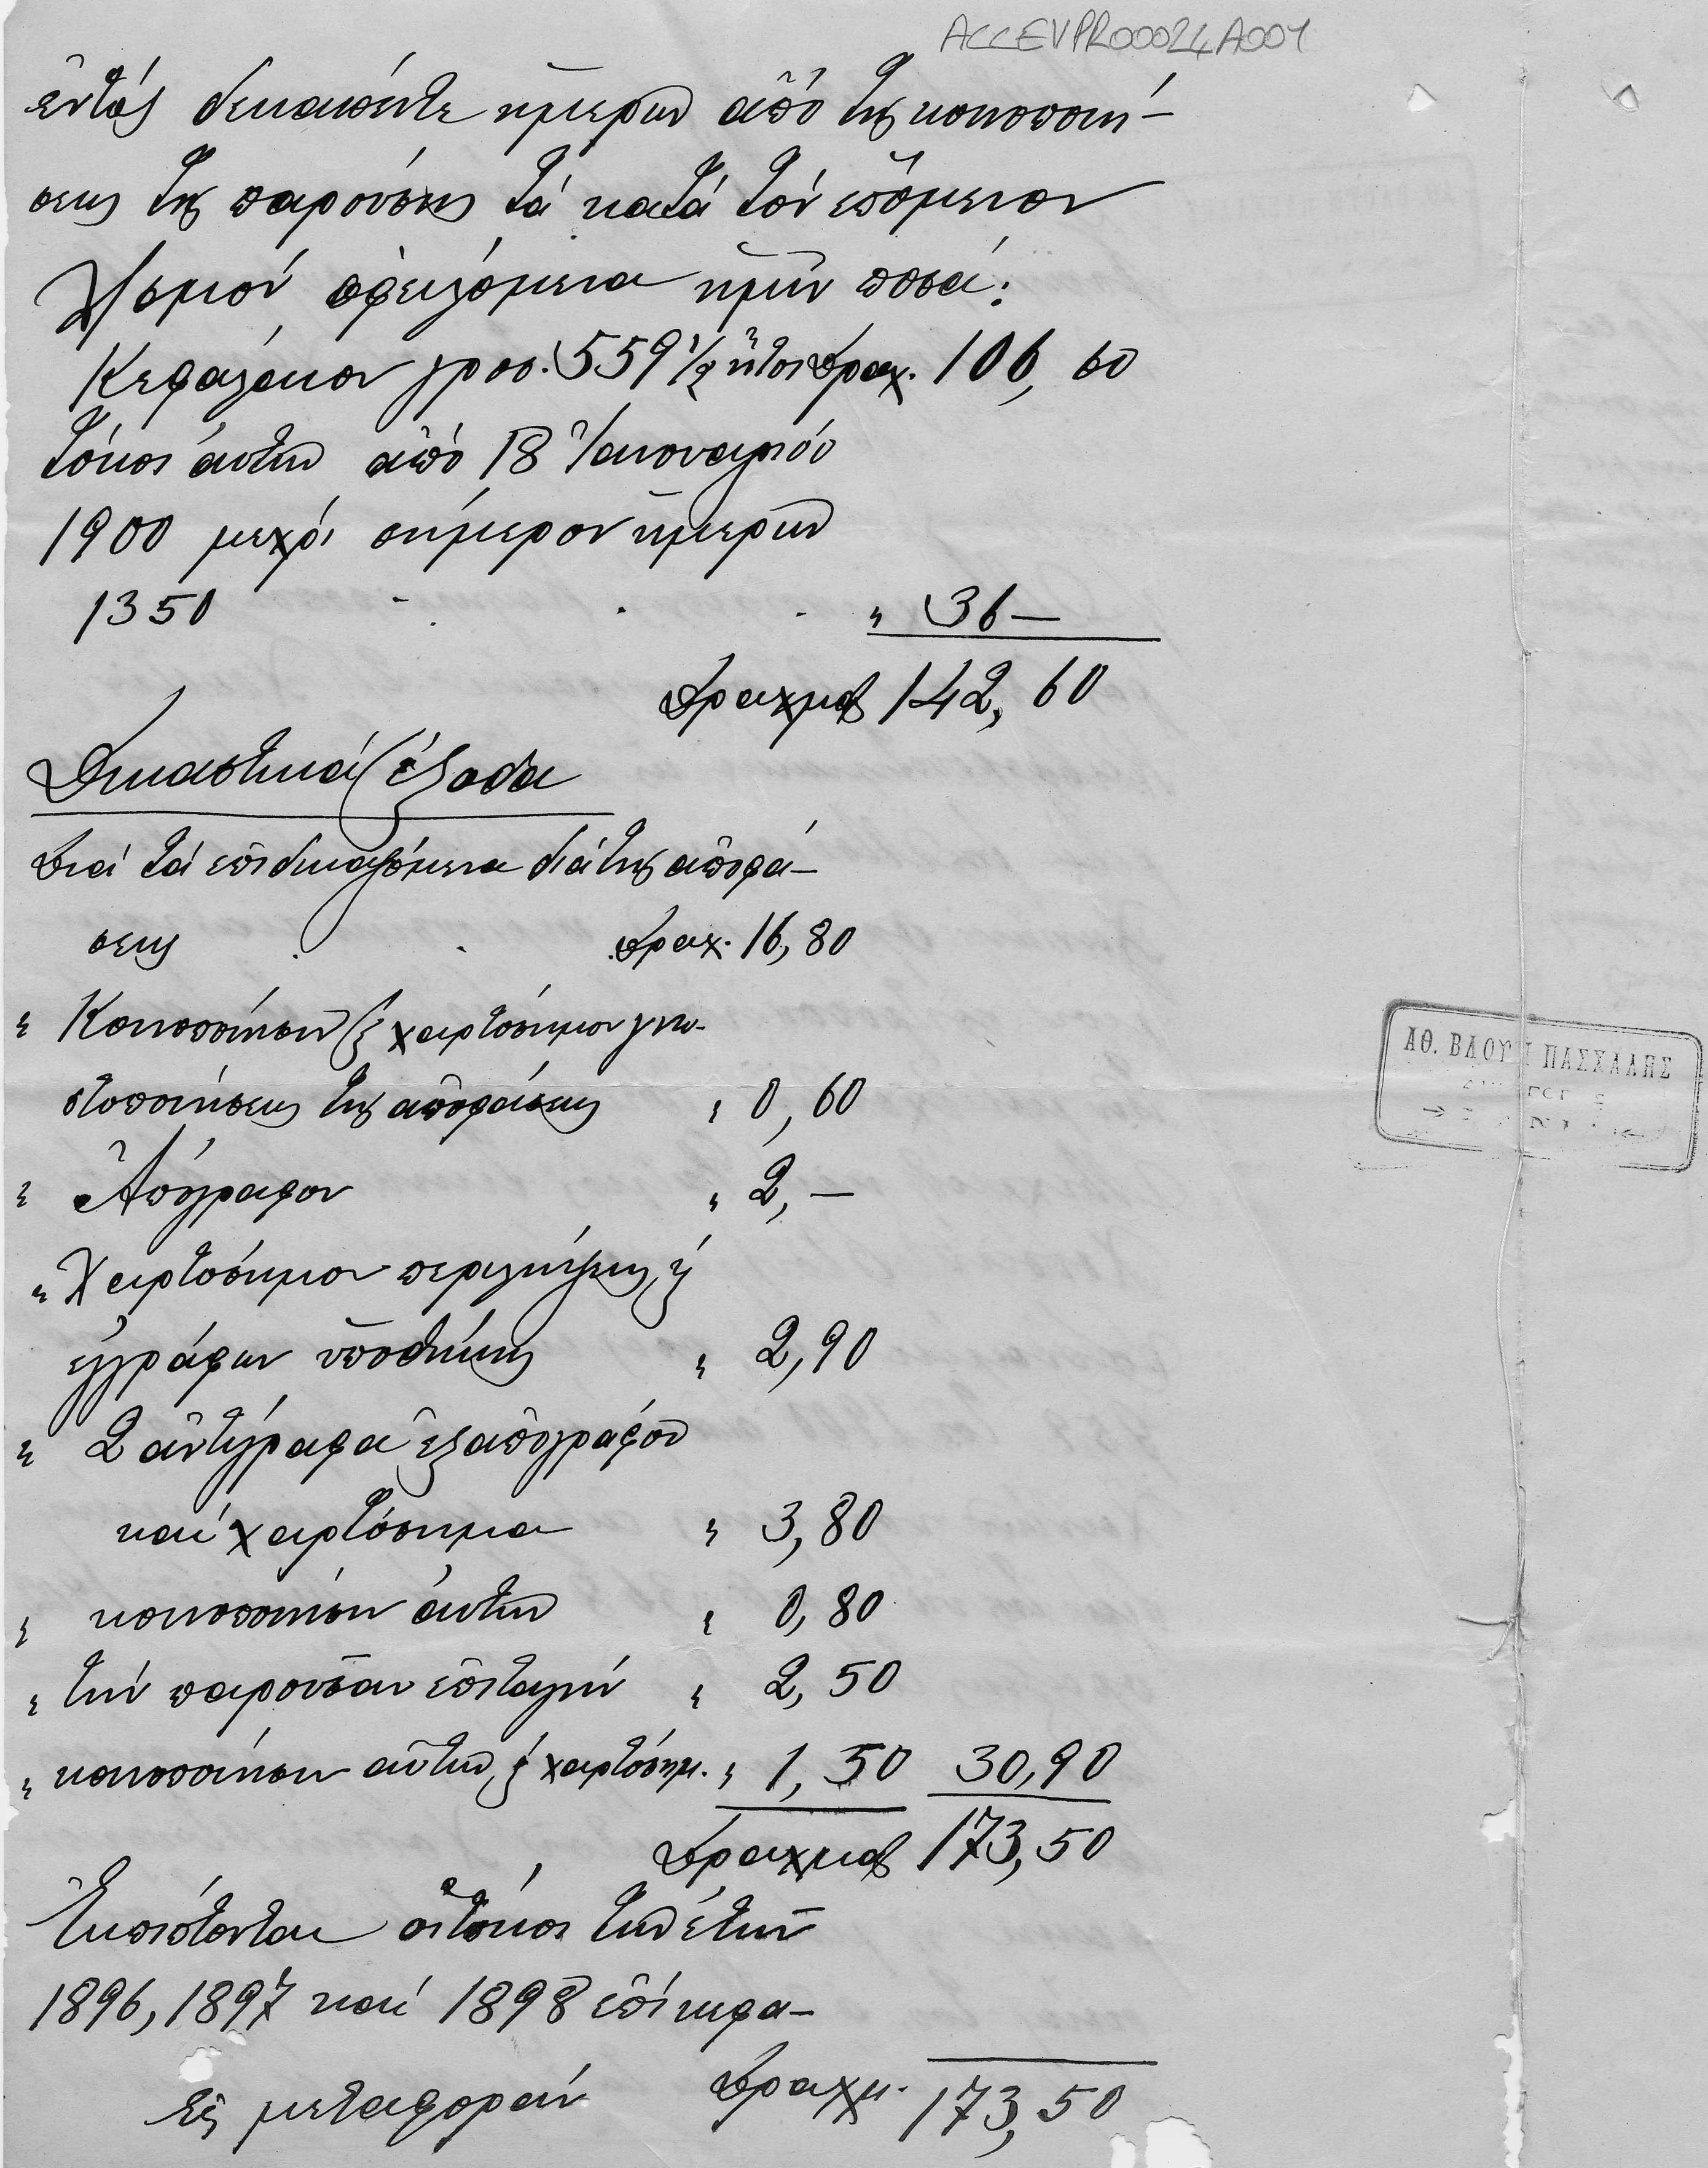 ACCEVPR00024A001
ἐντός δεκαπέντε ἡμερῶν ἀπό τῆς κοινοποιή-
σεως τῆς παρούσης τά κατά τόν ἑπόμενον
λ/σμόν ὀφειλόμενα ἡμῖν ποσά:
Κεφάλαιον γροσ. 559 1/2 ἤτοι δραχ. 106, 60
τόκοι αὐτῶν ἀπό 18 Ἰανουαρίου
1900 μεχρι σήμερον ἡμερῶν
1350 " 36 —
Δραχμάς 142, 60
Δικαστικά ἔξοδα
Διά τά ἐπιδικαζόμενα διά τῆς ἀποφά-
σεως Δραχ. 16, 80
" Κοινοποίησιν ξ χαρτόσημον γνω-
στοποιήσεως τῆς ἀποφάσεως " 0, 60
" Ἀπόγραφον " 2, —
" Χαρτόσημον περιλήψεως ξ
ἐγγράφων ὑποθήκης " 2, 90
" 2 ἀντίγραφα ἐξ ἀπογράφου
καί χαρτόσημα " 3, 80
" κοινοποίησιν αὐτῶν " 0, 80
" τήν παροῦσαν ἐπιταγήν " 2, 50
" κοινοποίησιν αὐτῶν ξ χαρτόσημ. " 1, 50 30,90
Δραχμάς 173, 50
Ἐκπίπτονται οἱ τόκοι τῶν ἐτῶν
1896, 1897 καί 1898 ἐπί κεφα-
Εἰς μεταφοράν Δραχμ. 173, 50
ΑΘ. ΒΛΟΥ ΠΑΣΧΑΛΗΣ